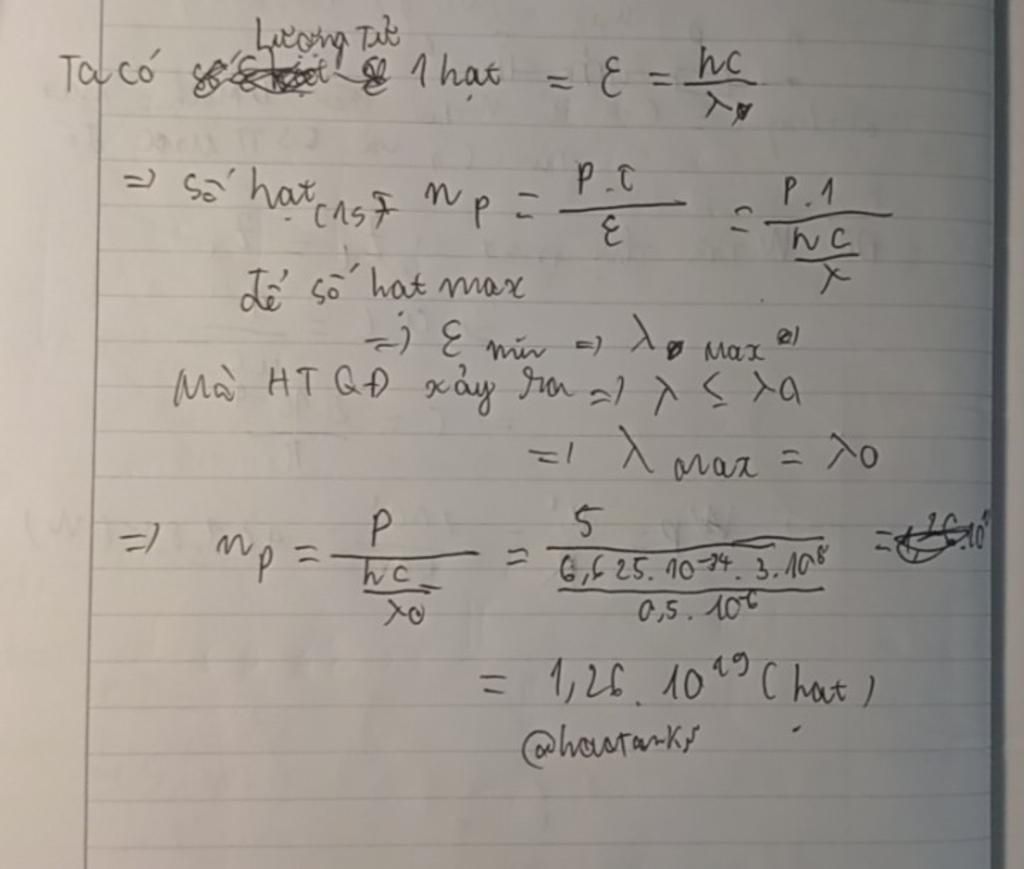 Lượng Tử
Ta có 1 hạt = ε = hc/λ
=> số hạt (1s) n_p = P.t/ε = P.1/(hc/λ)
để số hạt max
=> ε min => λ Max
Mà HTQĐ xảy ra => λ ≤ λ0
=> λ max = λ0
=> n_p = P/(hc/λ0) = 5/(6,625.10^-34.3.10^8/0,5.10^-6)
= 1,26.10^19 (hạt)